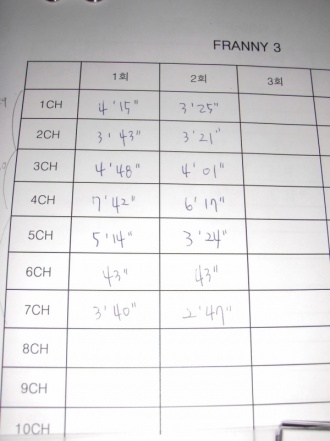 FRANNY 3
1회 2회 3회
1CH 4'15" 3'25"
2CH 3'43" 3'21"
3CH 4'48" 4'01"
4CH 7'42" 6'17"
5CH 5'14" 3'24"
6CH 43" 43"
7CH 3'40" 2'47"
8CH
9CH
10CH